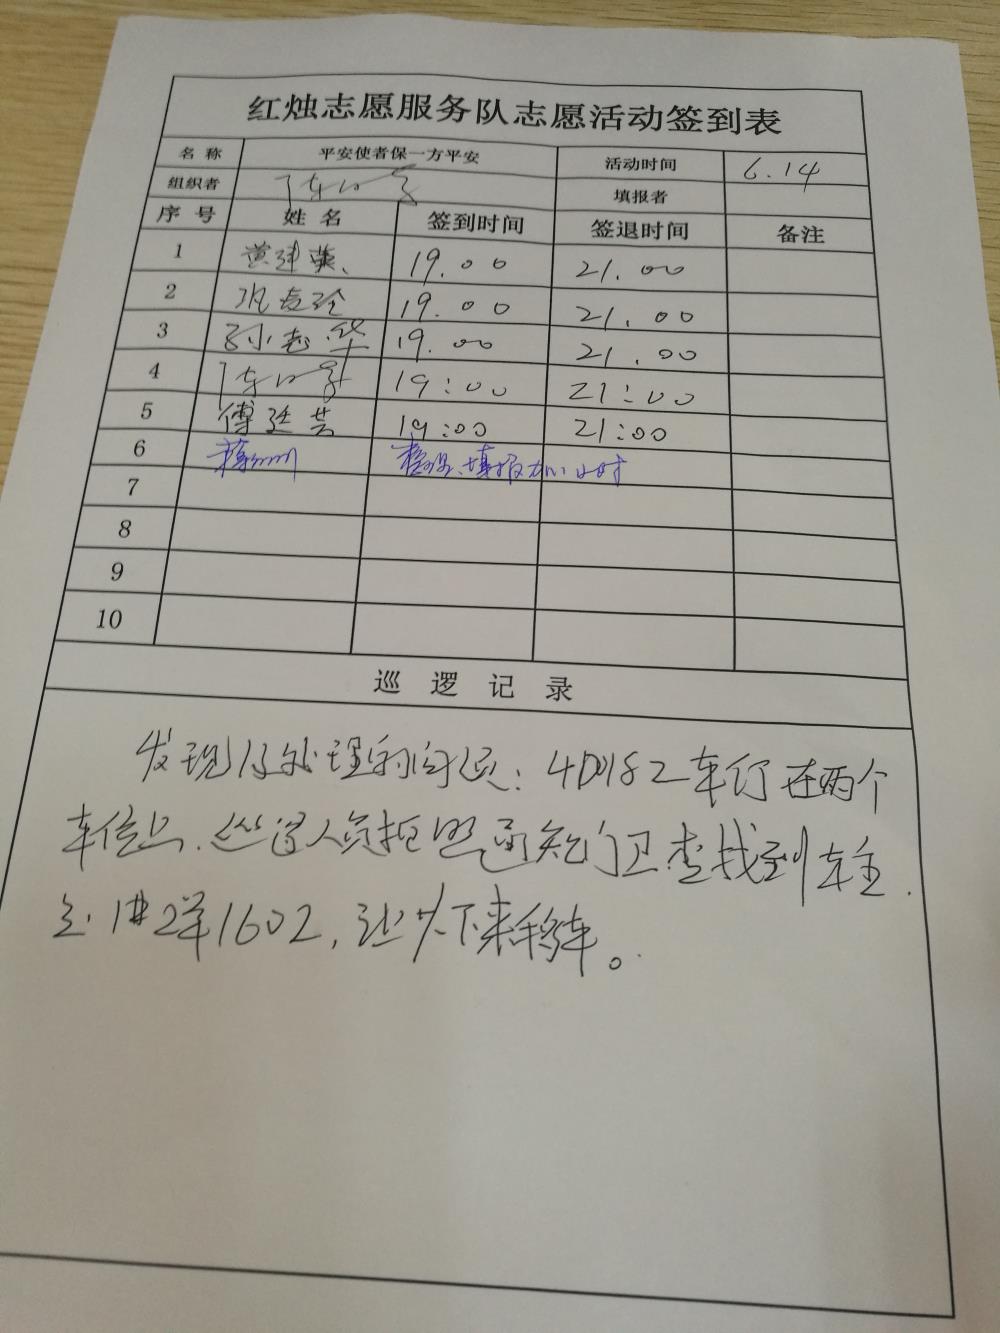 红烛志愿服务队志愿活动签到表
名称 平安使者保一方平安 活动时间 6.14
组织者 填报者
序号 姓名 签到时间 签退时间 备注
1 黄建英、 19.00 21.00
2 19.00 21.00
3 孙志华 19.00 21.00
4 19:00 21:00
5 傅廷芸 19:00 21:00
6 填报
7
8
9
10
巡逻记录
发现及处理的问题：4D182车停在两个
车位上.巡逻人员拍照通知门卫查找到车主
是1#2单1602,让其下来移车。